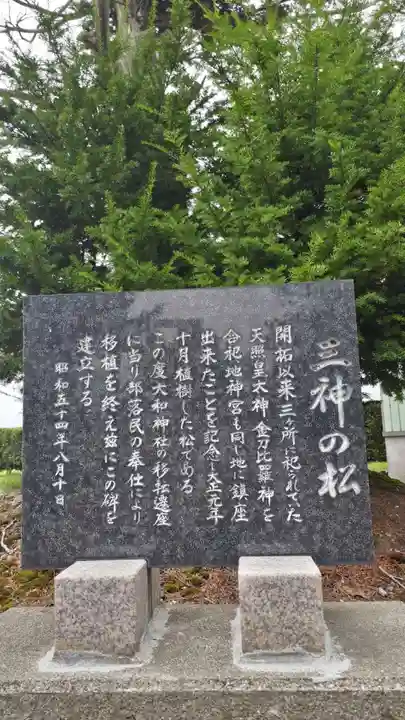 三神の松
開拓以来三ヶ所に祀られていた
天照皇大神金刀比羅神を
合祀地神宮も同じ地に鎮座
出来たことを記念し大正元年
十月植樹した松である
この度大和神社の移転遷座
に当り部落民の奉仕により
移植を終え茲にこの碑を
建立する
昭和五十四年八月十日